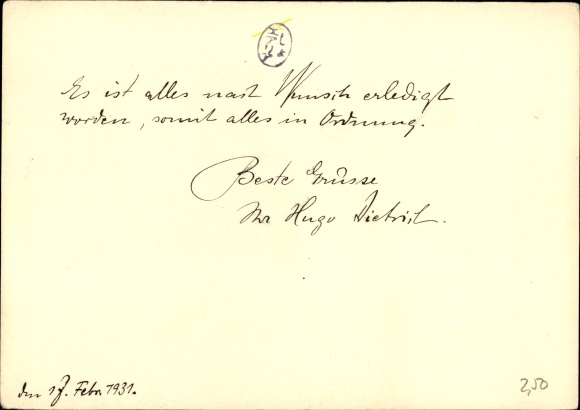 Es ist alles nach Wunsch erledigt
worden, somit alles in Ordnung.
Beste Grüsse
Ihr Hugo Dietrich.
den 17. Febr. 1931.
2,50